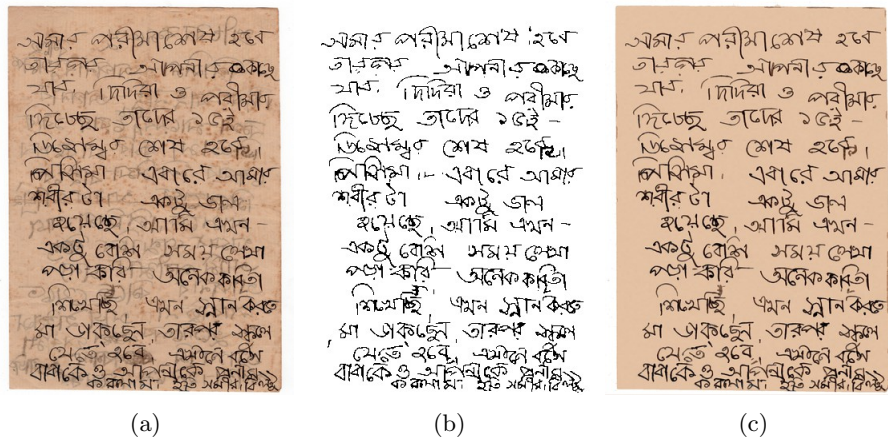 আমার পরীক্ষা শেষ হবে
তারপর আপনার কাছে
যাব. দিদিরা ও পরীক্ষার
দিচ্ছে তাদের ১৫ই –
ডিসেম্বর শেষ হবে।
এবারে আমার
শরীরটা একটু ভাল
হয়েছে, আমি এখন –
একটু বেশি সময় লেখা
পড়া করি অনেক কবিতা
শিখেছি এখন স্নান করতে
মা ডাকছেন তারপর স্কুল
যেতে হবে, এখানে বসে
বাবাকে ও আপনাকে প্রনাম
করলাম. ইতি
(a)
আমার পরীক্ষা শেষ হবে
তারপর আপনার কাছে
যাব. দিদিরা ও পরীক্ষার
দিচ্ছে তাদের ১৫ই –
ডিসেম্বর শেষ হবে।
এবারে আমার
শরীরটা একটু ভাল
হয়েছে, আমি এখন –
একটু বেশি সময় লেখা
পড়া করি অনেক কবিতা
শিখেছি এখন স্নান করতে
মা ডাকছেন তারপর স্কুল
যেতে হবে, এখানে বসে
বাবাকে ও আপনাকে প্রনাম
করলাম. ইতি
(b)
আমার পরীক্ষা শেষ হবে
তারপর আপনার কাছে
যাব. দিদিরা ও পরীক্ষার
দিচ্ছে তাদের ১৫ই –
ডিসেম্বর শেষ হবে।
এবারে আমার
শরীরটা একটু ভাল
হয়েছে, আমি এখন –
একটু বেশি সময় লেখা
পড়া করি অনেক কবিতা
শিখেছি এখন স্নান করতে
মা ডাকছেন তারপর স্কুল
যেতে হবে, এখানে বসে
বাবাকে ও আপনাকে প্রনাম
করলাম. ইতি
(c)